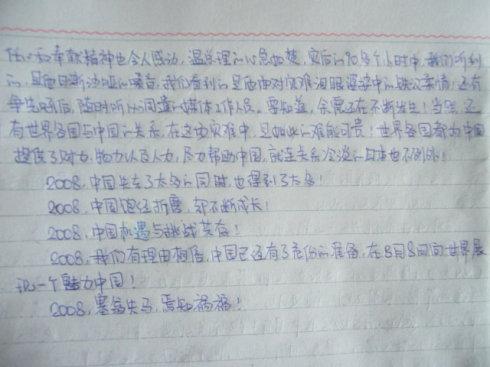 体心和奉献精神也令人感动。温总理的心急如焚，灾后的70多个小时中，我们听到
的，是他日渐沙哑的嗓音，我们看到的是他面对灾难泪眼婆娑中的款款亲情；还有
争先恐后，随时听从调遣的媒体工作人员。要知道，余震还在不断发生！当然，还
有世界各国与中国的关系，在这场灾难中，是如此的难能可贵！世界各国都为中国
提供了财力、物力以及人力，尽力帮助中国，就连关系冷淡的日本也不例外！
2008，中国失去了太多的同时，也得到了太多！
2008，中国饱经折磨，却不断成长！
2008，中国机遇与挑战并存！
2008，我们有理由相信，中国已经有了充份的准备，在8月8日向世界展
现一个魅力中国！
2008，塞翁失马，焉知祸福！